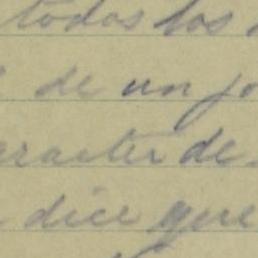 todos los
de un jo
aracter de
dice que